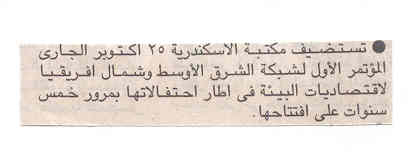 ● تستضيف مكتبة الاسكندرية ٢٥ اكتوبر الجارى
المؤتمر الأول لشبكة الشرق الأوسط وشمال افريقيا
لاقتصاديات البيئة فى اطار احتفالاتها بمرور خمس
سنوات على افتتاحها.